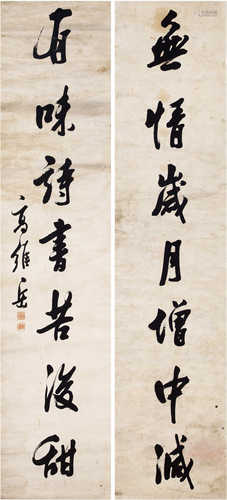 無情歲月增中減
有味詩書苦後甜
高維岳